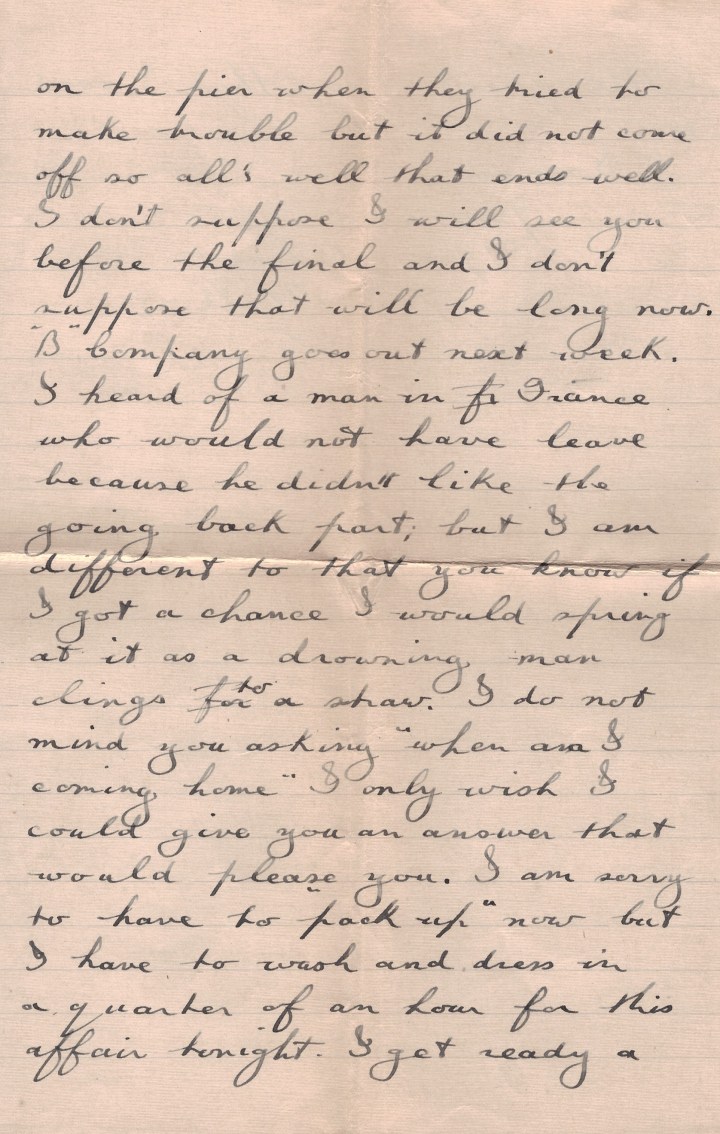 on the pier when they tried to
make trouble but it did not come
off so all's well that ends well.
I don't suppose I will see you
before the final and I don't
suppose that will be long now.
"B" Company goes out next week.
I heard of a man in fr France
who would not have leave
because he didn't like the
going back part; but I am
different to that you know if
I got a chance I would spring
at it as a drowning man
clings for to a straw. I do not
mind you asking "when am I
coming home" I only wish I
could give you an answer that
would please you. I am sorry
to have to "pack up" now but
I have to wash and dress in
a quarter of an hour for this
affair tonight. I get ready a